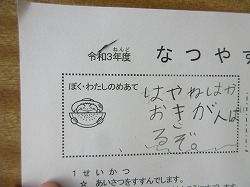 ねんど
令和3年度
なつやす
ぼく・わたしのめあて
はやねはや
おきがんば
るぞ。
1 せいかつ
☆ あいさつをすすんでします。